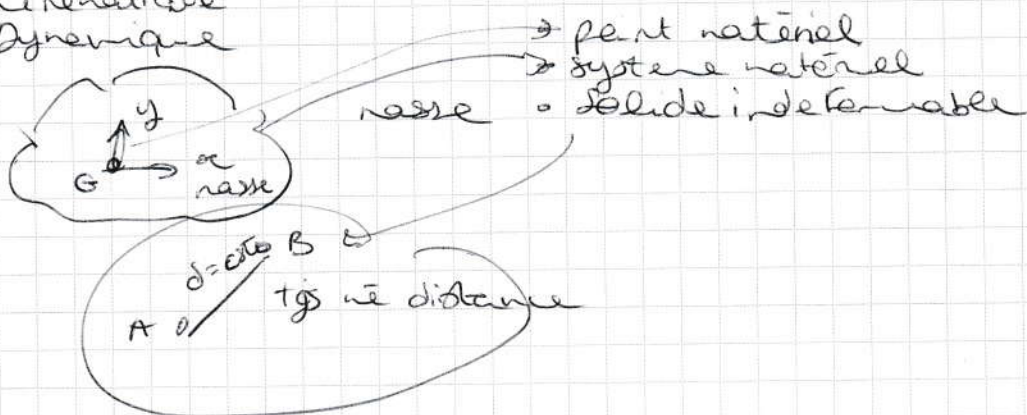 Cinématique
Dynamique
→ point matériel
→ système matériel
masse • Solide indéformable
y
G x
masse
d=cste B
tjs m̂ distance
A